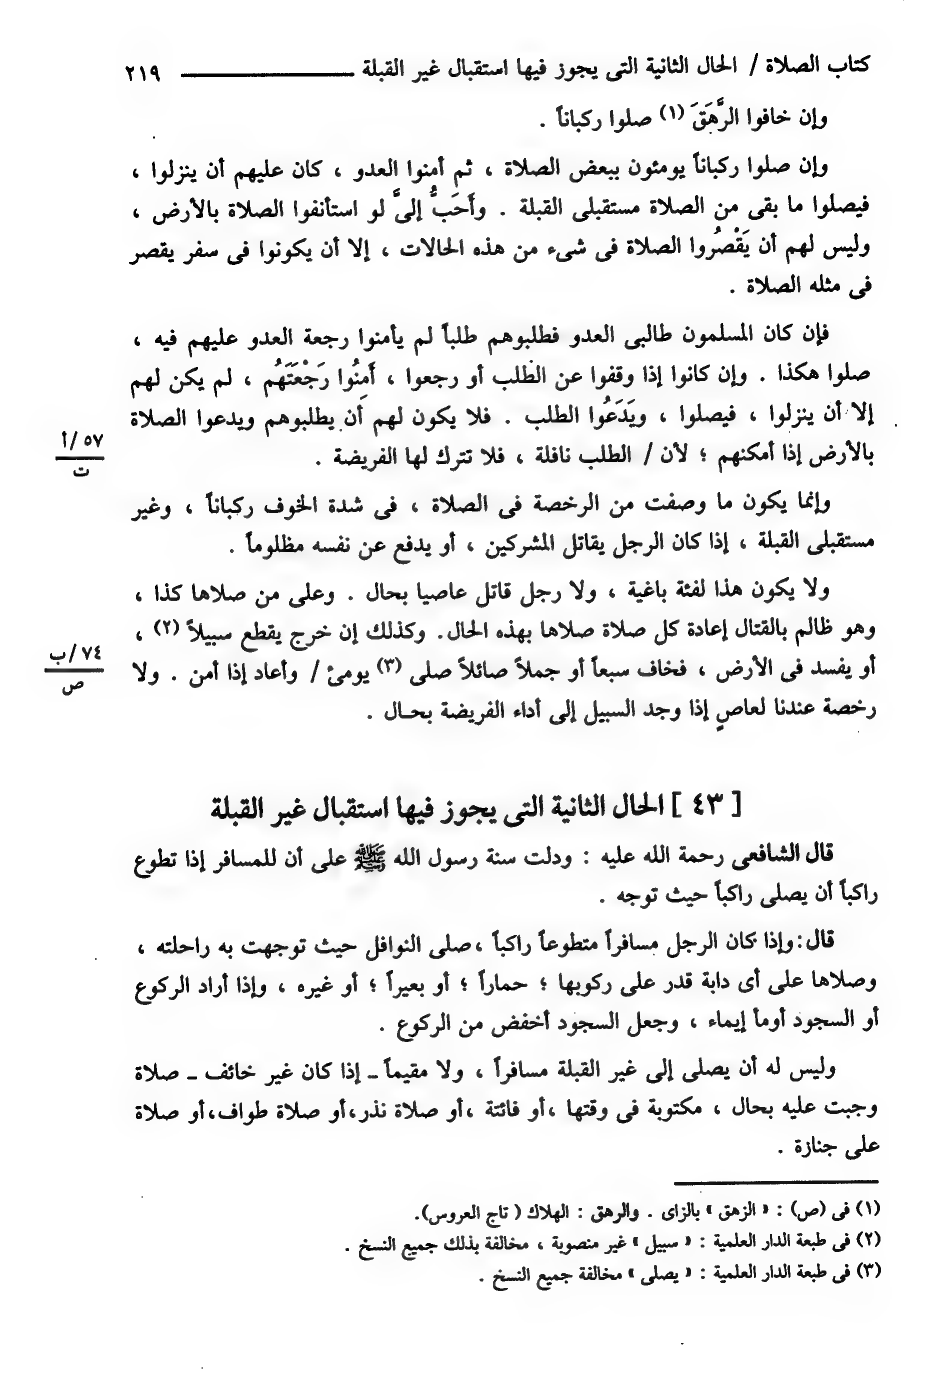 كتاب الصلاة / الحال الثانية التى يجوز فيها استقبال غير القبلة ٢١٩
وإن خافوا الرَّهَقَ (١) صلوا ركباناً .
وإن صلوا ركباناً يومئون ببعض الصلاة ، ثم أمنوا العدو ، كان عليهم أن ينزلوا ،
فيصلوا ما بقى من الصلاة مستقبلى القبلة . وأَحَبُّ إلىَّ لو استأنفوا الصلاة بالأرض ،
وليس لهم أن يَقْصُروا الصلاة فى شىء من هذه الحالات ، إلا أن يكونوا فى سفر يقصر
فى مثله الصلاة .
فإن كان المسلمون طالبى العدو فطلبوهم طلباً لم يأمنوا رجعة العدو عليهم فيه ،
صلوا هكذا . وإن كانوا إذا وقفوا عن الطلب أو رجعوا ، أَمِنُوا رَجْعَتَهُم ، لم يكن لهم
إلا أن ينزلوا ، فيصلوا ، ويَدَعُوا الطلب . فلا يكون لهم أن يطلبوهم ويدعوا الصلاة
بالأرض إذا أمكنهم ؛ لأن / الطلب نافلة ، فلا تترك لها الفريضة .
٥٧ /أ
ت
وإنما يكون ما وصفت من الرخصة فى الصلاة ، فى شدة الخوف ركباناً ، وغير
مستقبلى القبلة ، إذا كان الرجل يقاتل المشركين ، أو يدفع عن نفسه مظلوماً .
ولا يكون هذا لفئة باغية ، ولا رجل قاتل عاصيا بحال . وعلى من صلاها كذا ،
وهو ظالم بالقتال إعادة كل صلاة صلاها بهذه الحال. وكذلك إن خرج يقطع سبيلاً (٢) ،
أو يفسد فى الأرض ، فخاف سبعاً أو جملاً صائلاً صلى (٣) يومئ / وأعاد إذا أمن . ولا
٧٤ /ب
ص
رخصة عندنا لعاصٍ إذا وجد السبيل إلى أداء الفريضة بحـال .
[ ٤٣ ] الحال الثانية التى يجوز فيها استقبال غير القبلة
قال الشافعى رحمة الله عليه : ودلت سنة رسول الله ﷺ على أن للمسافر إذا تطوع
راكباً أن يصلى راكباً حيث توجه .
قال: وإذا كان الرجل مسافراً متطوعاً راكباً ، صلى النوافل حيث توجهت به راحلته ،
وصلاها على أى دابة قدر على ركوبها ؛ حماراً ؛ أو بعيراً ؛ أو غيره ، وإذا أراد الركوع
أو السجود أومأ إيماء ، وجعل السجود أخفض من الركوع .
وليس له أن يصلى إلى غير القبلة مسافراً ، ولا مقيماً ـ إذا كان غير خائف ـ صلاة
وجبت عليه بحال ، مكتوبة فى وقتها ، أو فائتة ، أو صلاة نذر، أو صلاة طواف، أو صلاة
على جنازة .
(١) فى (ص) : « الزهق » بالزاى . والرهق : الهلاك ( تاج العروس).
(٢) فى طبعة الدار العلمية : « سبيل » غير منصوبة ، مخالفة بذلك جميع النسخ .
(٣) فى طبعة الدار العلمية : « يصلى » مخالفة جميع النسخ .